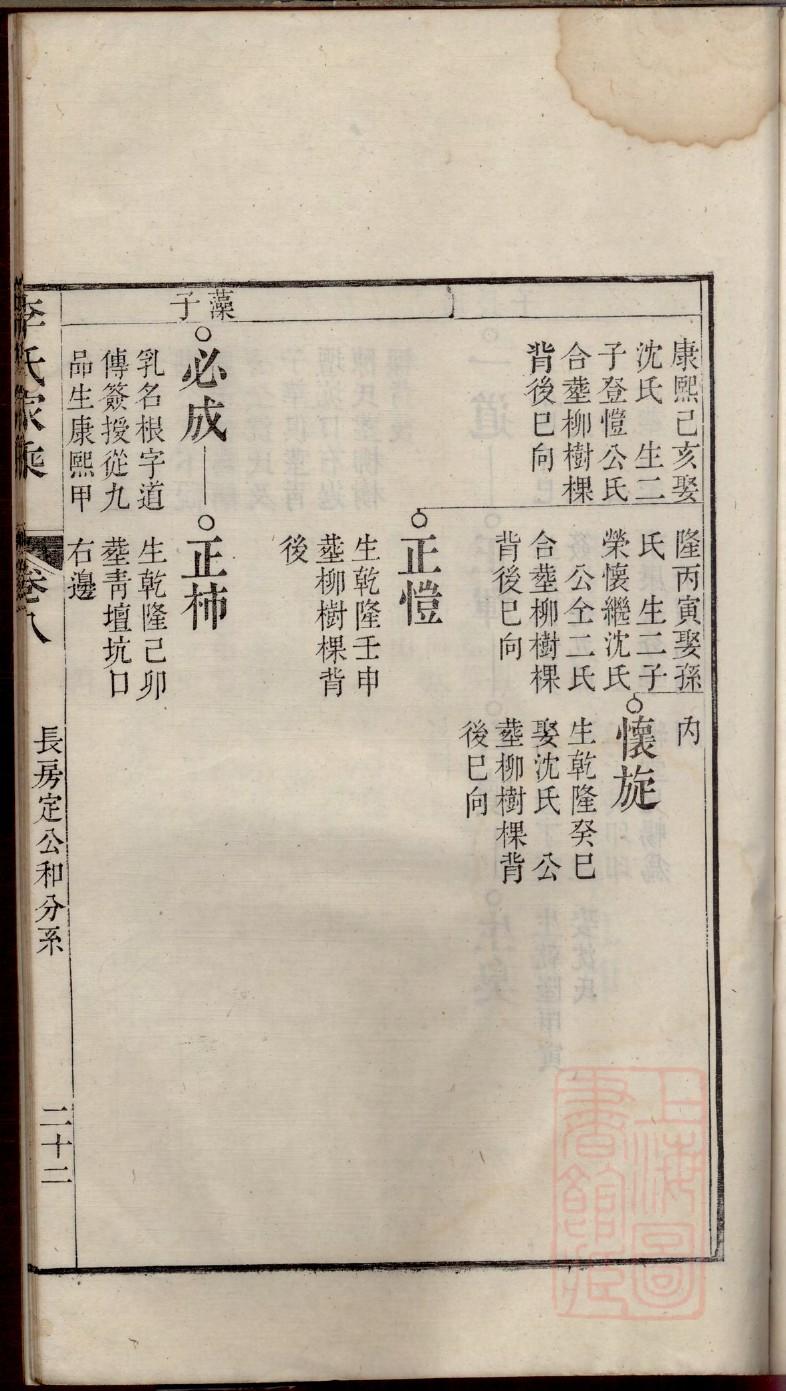 康熙己亥娶
沈氏　生二
子登愷公氏
合塟柳樹棵
背後巳向
隆丙寅娶孫
氏　生二子
榮懷繼沈氏
公仝二氏
合塟柳樹棵
背後巳向
内
懷旋
生乾隆癸巳
娶沈氏　公
塟柳樹棵背
後巳向
正愷
生乾隆壬申
塟柳樹棵背
後
藻子
必成
乳名根字道
傳簽授從九
品生康熙甲
正柿
生乾隆己卯
塟靑壇坑口
右邊
李氏家乘
卷八
長房定公和分系
二十二
上海圖書館藏